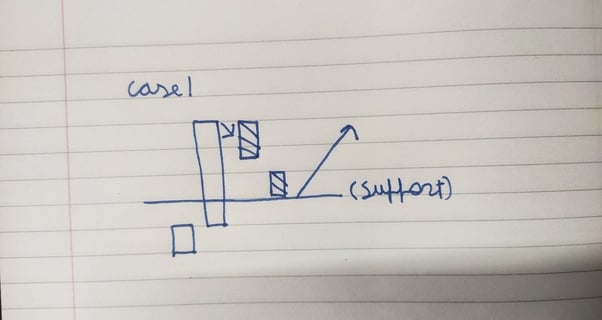 case1
(support)